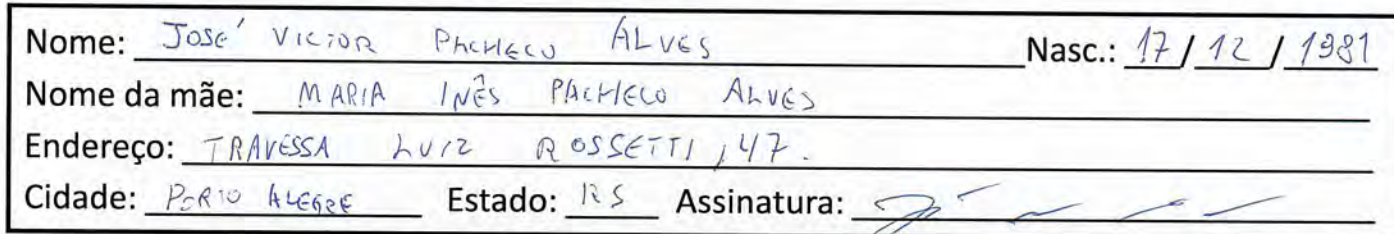 Nome: José Victor Pacheco Alves Nasc.: 17/12/1981
Nome da mãe: MARIA INÊS PACHECO ALVES
Endereço: TRAVESSA LUIZ ROSSETTI, 47.
Cidade: PORTO ALEGRE Estado: RS Assinatura: